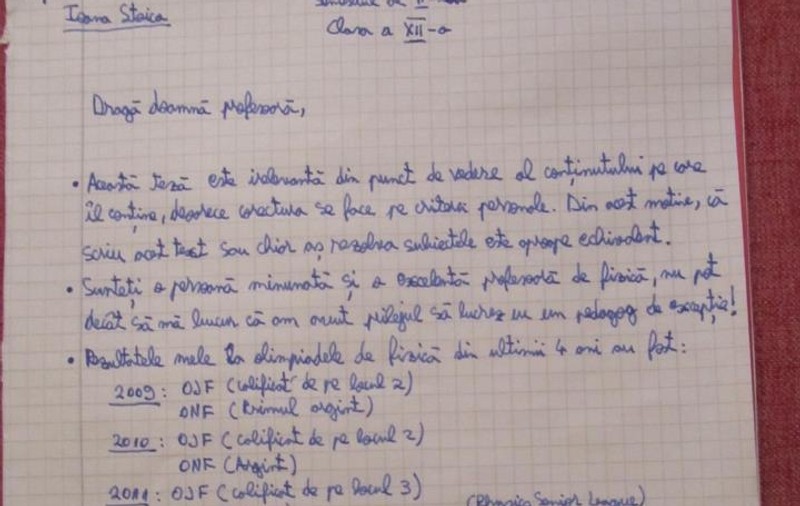 Ioana Staicu
Clasa a XII-a
Dragă doamnă profesoară,
• Această teză este irelevantă din punct de vedere al conținutului pe care
îl conține, deoarece corectura se face pe criterii personale. Din acest motiv, că
scriu acest text sau chiar aș rezolva subiectele este aproape echivalent.
• Sunteți o persoană minunată și o excelentă profesoară de fizică, nu pot
decât să mă bucur că am avut prilejul să lucrez cu un pedagog de excepție!
• Rezultatele mele la olimpiadele de fizică din ultimii 4 ani au fost:
2009: OJF (calificat de pe locul 2)
ONF (Primul argint)
2010: OJF (calificat de pe locul 2)
ONF (Argint)
2011: OJF (calificat de pe locul 3)
(Physics Senior League)